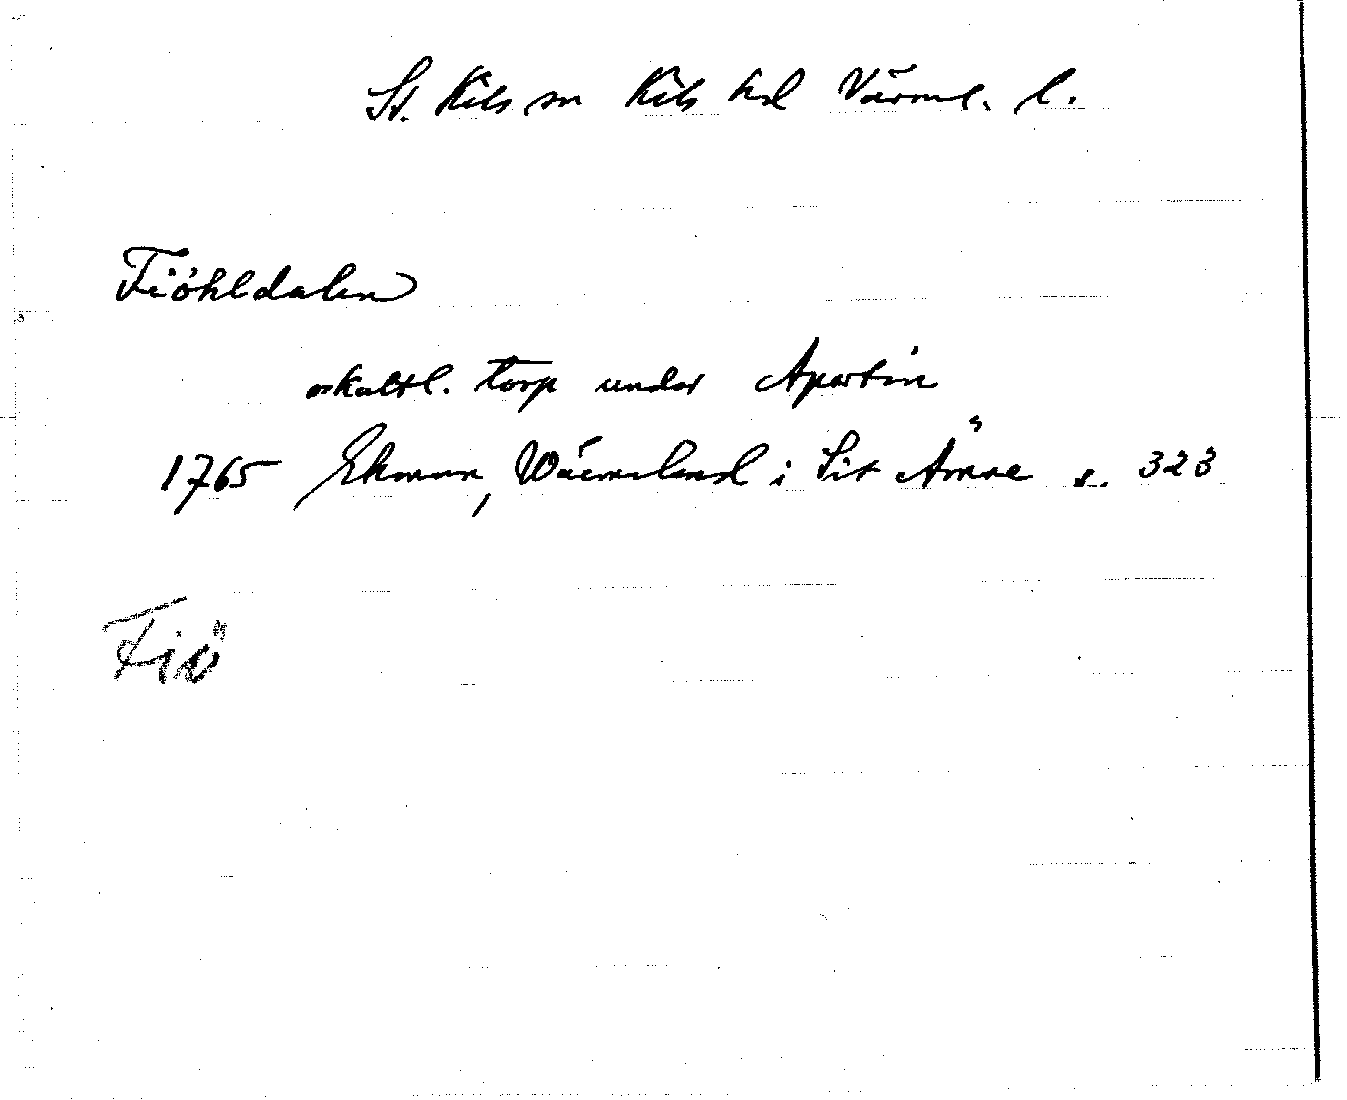 St. Kils sn Kils hd Värml. l.
Fiöhldalen
oskattl. torp under Apertin
1765 Ekman, Wärmeland i Sit Ämne s. 323
Fiö